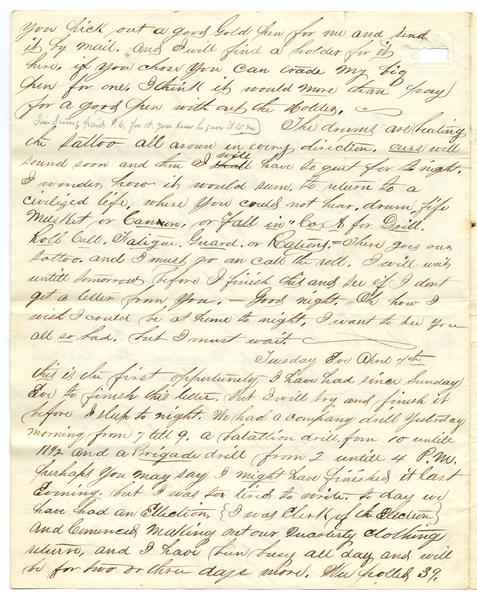 you pick out a good Gold pen for me and send
it by mail. and I will find a holder for it
here. if you chose you can trade my big
pen for one. I think it would more than pay
for a good pen with out the Holder.
The drums are beating
the tattoo all aroun in evry direction. ours will
sound soon and then I will have to quit for to night.
I wonder how it would seem to return to a
civilized life, where you could not hear, drum, fife
Musket or Cannon, or Fall in "Co. A for Drill,
Roll Call, Fatigue, Guard, or Rations. There goes our
tattoo. and I must go an call the roll. I will wait
untill tomorrow before I finish this and see if I dont
get a letter from you. — Good night. Oh how I
wish I could be at home to night, I want to see you
all so bad. but I must wait
Tuesday Eve April 4th
this is the first opportunity I have had since Sunday
Eve to finish this letter. but I will try and finish it
before I sleep to night. We had a company drill yesterday
morning from 7 till 9. a battallion drill from 10 untill
and a Brigade drill from 2 untill 4 P.M.
perhaps you may say I might have finished it last
Evening. but I was too tired to write. to day we
have had an Election, {I was Clerk of the Election}
and Comenced making out our Quarterly clothing
return, and I have been busy all day and will
be for two or three days more. We polled 39.